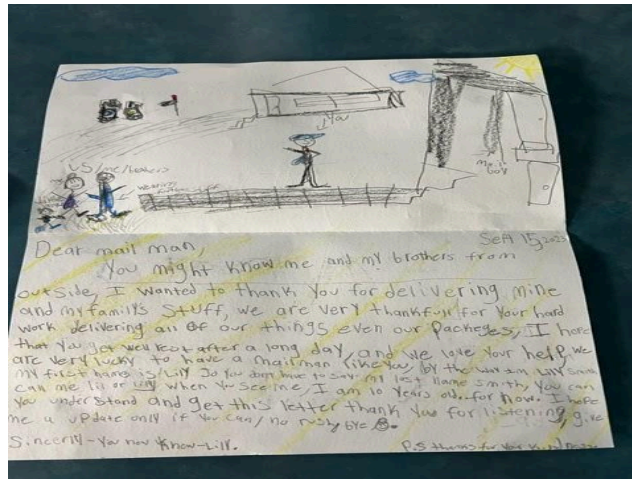 You
US/me/brothers
mail
Sept 15, 2023
Dear mail man,
You might know me and my brothers from
outside, I wanted to thank you for delivering mine
and my family's stuff, we are very thankfull for your hard
work delivering all of our things even our packeges, I hope
that you get well rest after a long day, and we love your help, we
are very lucky to have a mailman like you, by the way im Lilly Smith
my first name is/Lilly So you don't have to say my last name smith, you can
call me lil or lilly when you see me, I am 10 years old. for now. I hope
you understand and get this letter thank you for listening, give
me a update only if you can/no rush, bye
Sincerly-You now know-Lilly.
P.S thanks for your kindness